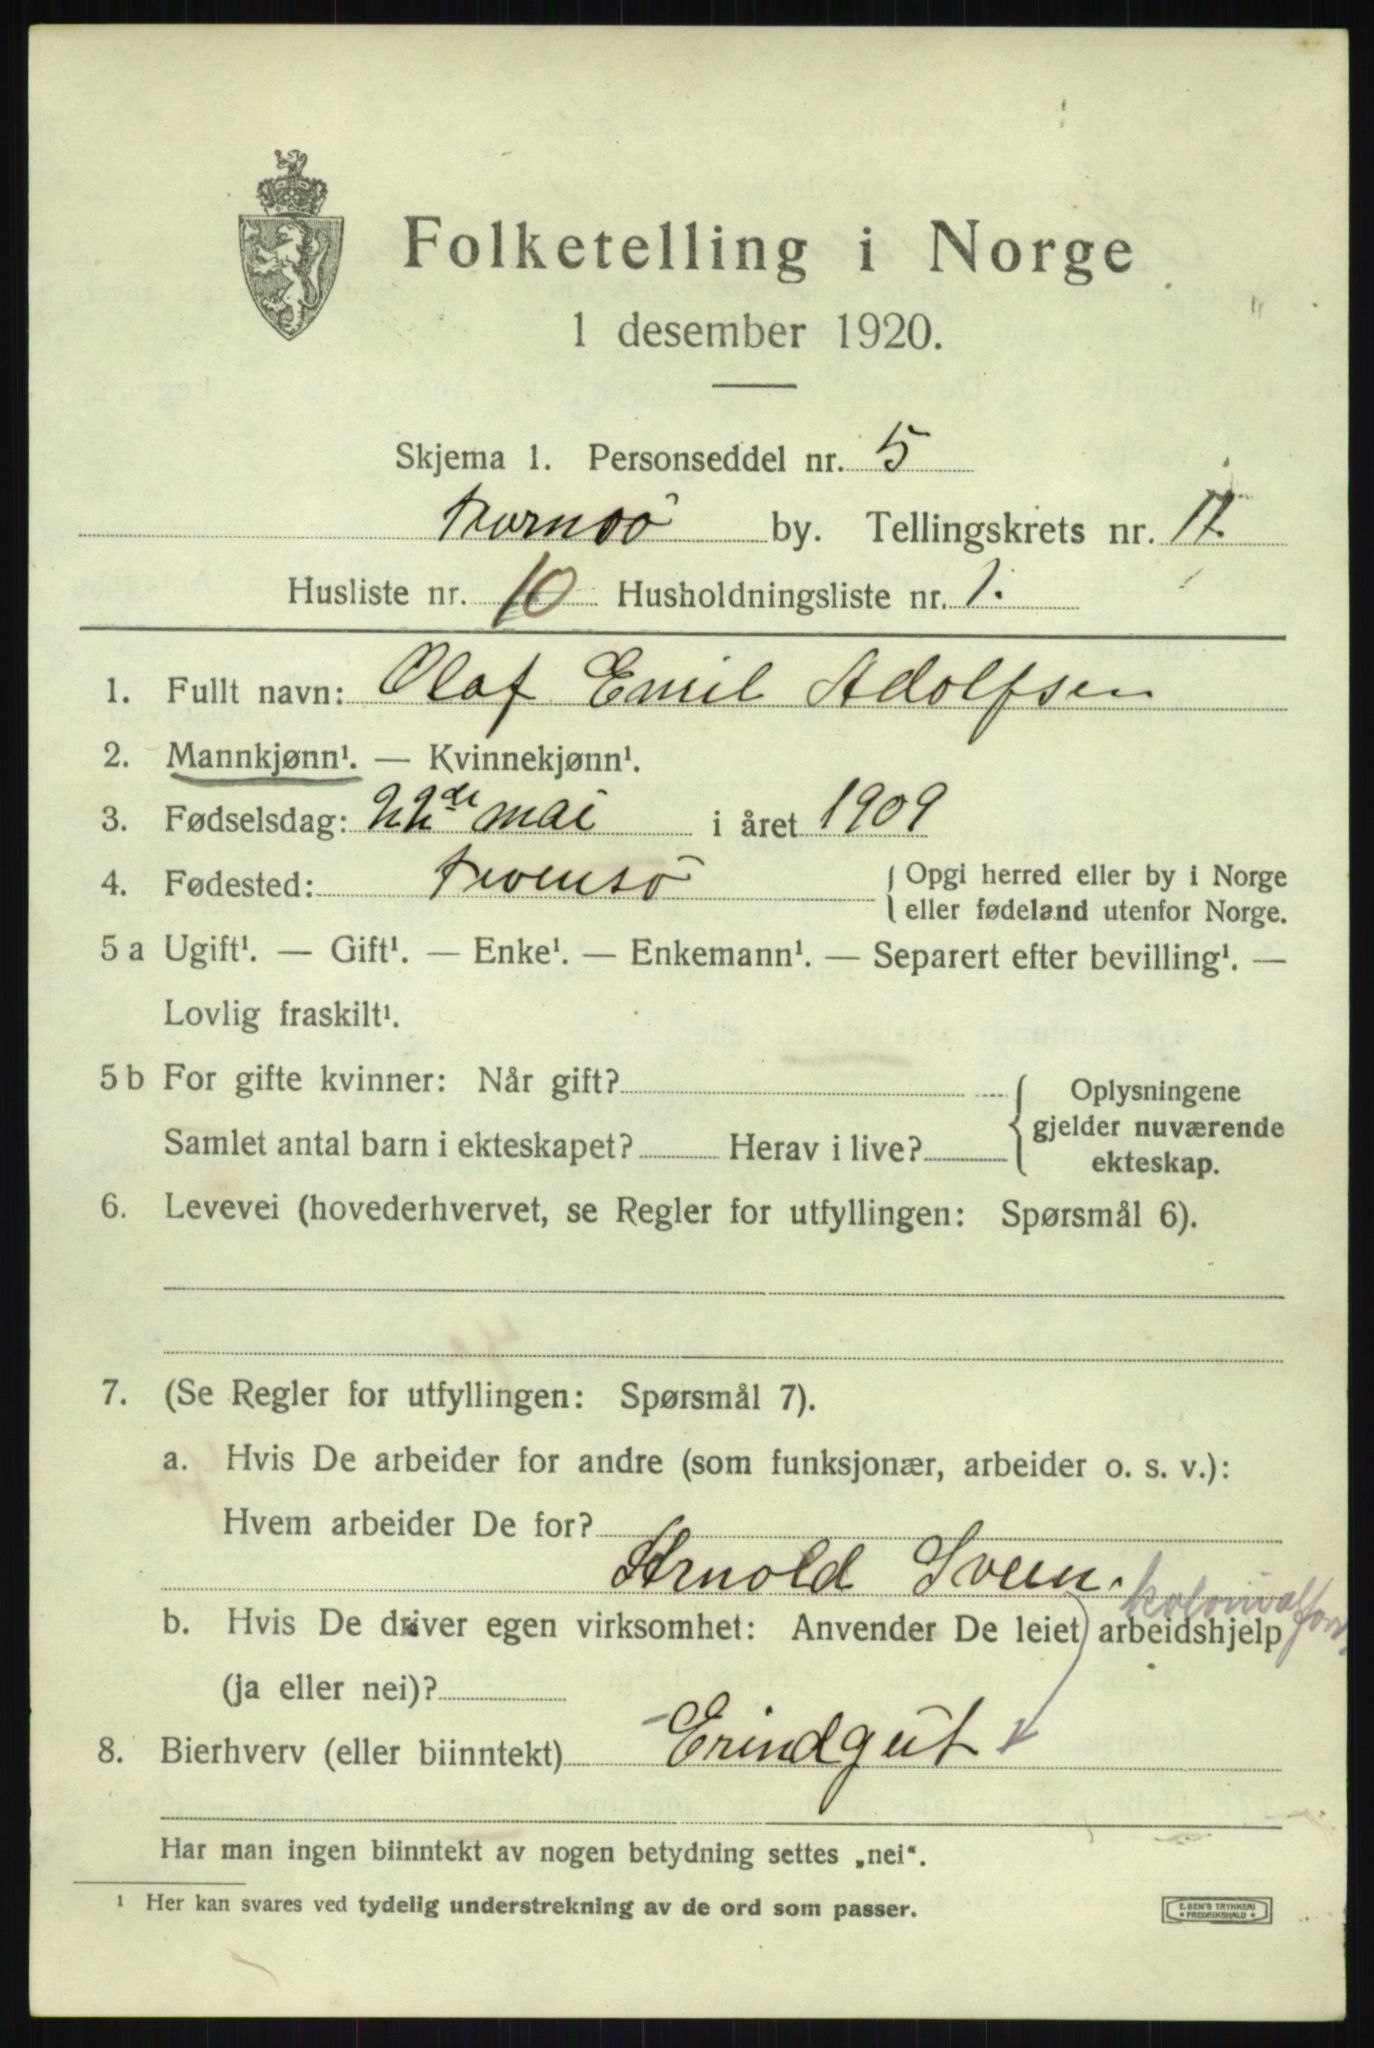 Folketelling i Norge
1 desember 1920.
Skjema 1. Personseddel nr. 5
Tromsö by. Tellingskrets nr. 17.
Husliste nr. 10 Husholdningsliste nr. 1.
1. Fullt navn: Olaf Emil Adolfsen
2. Mannkjønn¹. — Kvinnekjønn¹.
3. Fødselsdag: 22de mai i året 1909
4. Fødested: Tromsö { Opgi herred eller by i Norge
eller fødeland utenfor Norge.
5 a Ugift¹. — Gift¹. — Enke¹. — Enkemann¹. — Separert efter bevilling¹. —
Lovlig fraskilt¹.
5 b For gifte kvinner: Når gift? { Oplysningene
gjelder nuværende
ekteskap.
Samlet antal barn i ekteskapet? Herav i live?
6. Levevei (hovederhvervet, se Regler for utfyllingen: Spørsmål 6).
7. (Se Regler for utfyllingen: Spørsmål 7).
a. Hvis De arbeider for andre (som funksjonær, arbeider o. s. v.):
Hvem arbeider De for?
Arnold Sveen. kolonialforr.
b. Hvis De driver egen virksomhet: Anvender De leiet arbeidshjelp
(ja eller nei)?
8. Bierhverv (eller biinntekt) Erindgut
Har man ingen biinntekt av nogen betydning settes „nei“.
¹ Her kan svares ved tydelig understrekning av de ord som passer.
E. SEM'S TRYKKERI
FREDRIKSHALD